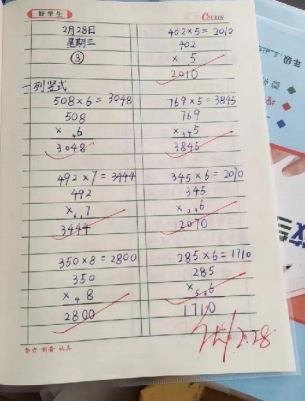 好学生
2月28日
星期三
③
一列竖式
508×6=3048
508
× 6
3048
492×7=3444
492
× 7
3444
350×8=2800
350
× 8
2800
402×5=2010
402
× 5
2010
769×5=3845
769
× 5
3845
345×6=2010
345
× 6
2070
285×6=1710
285
× 6
1710
2.28